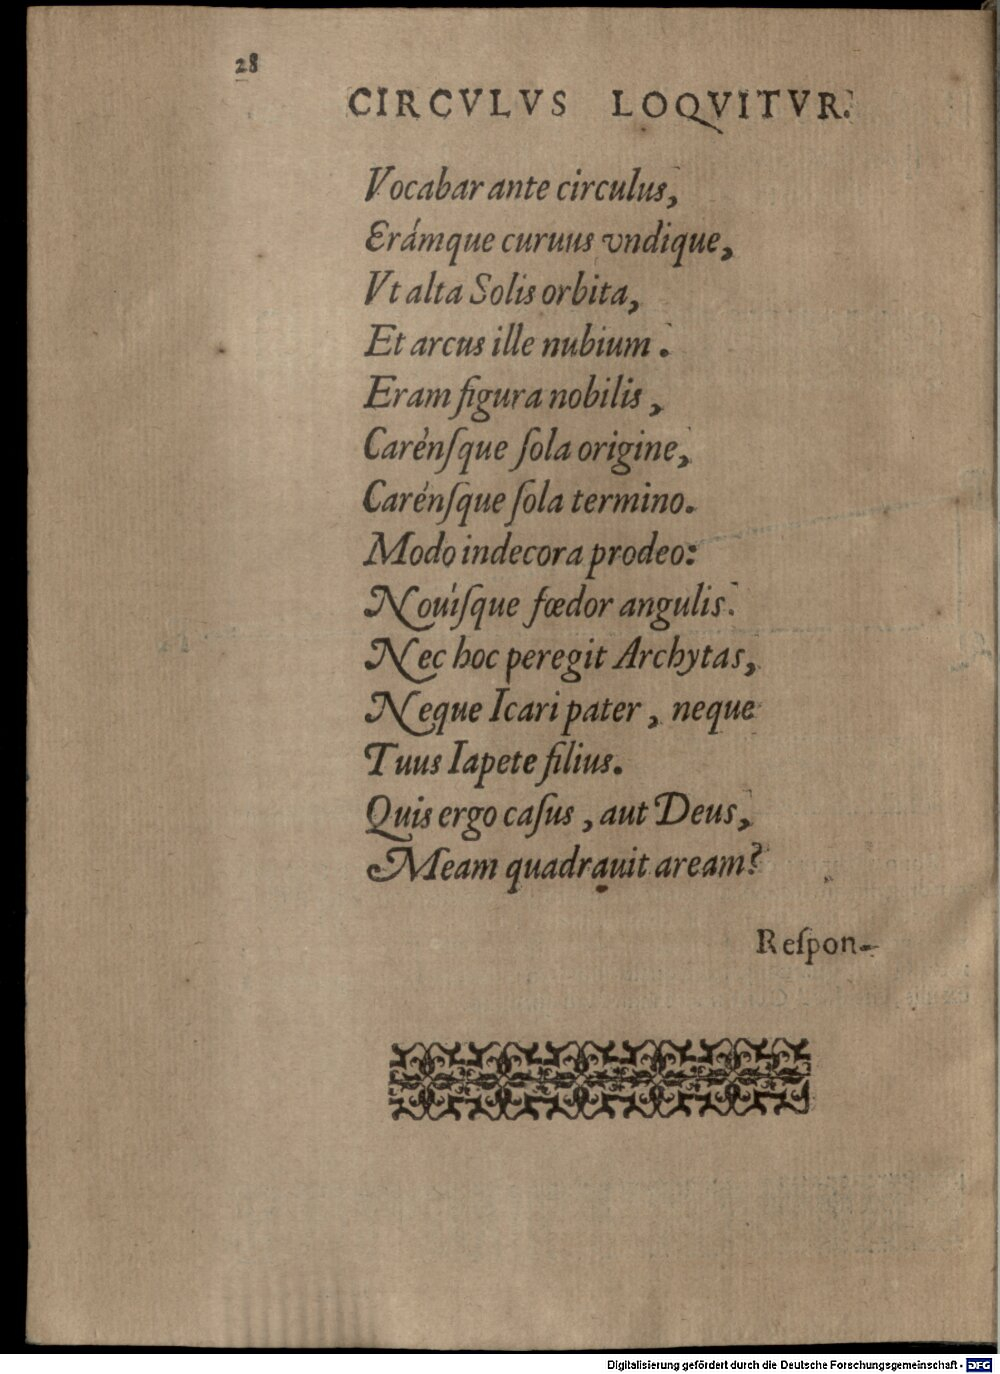 28
CIRCVLVS LOQVITVR.
Vocabar ante circulus,
Erámque curuus vndique,
Vt alta Solis orbita,
Et arcus ille nubium.
Eram figura nobilis,
Carénſque ſola origine,
Carénſque ſola termino.
Modo indecora prodeo:
Nouíſque fœdor angulis.
Nec hoc peregit Archytas,
Neque Icari pater, neque
Tuus Iapete filius.
Quis ergo caſus, aut Deus,
Meam quadrauit aream?
Reſpon-
Digitalisierung gefördert durch die Deutsche Forschungsgemeinschaft - DFG